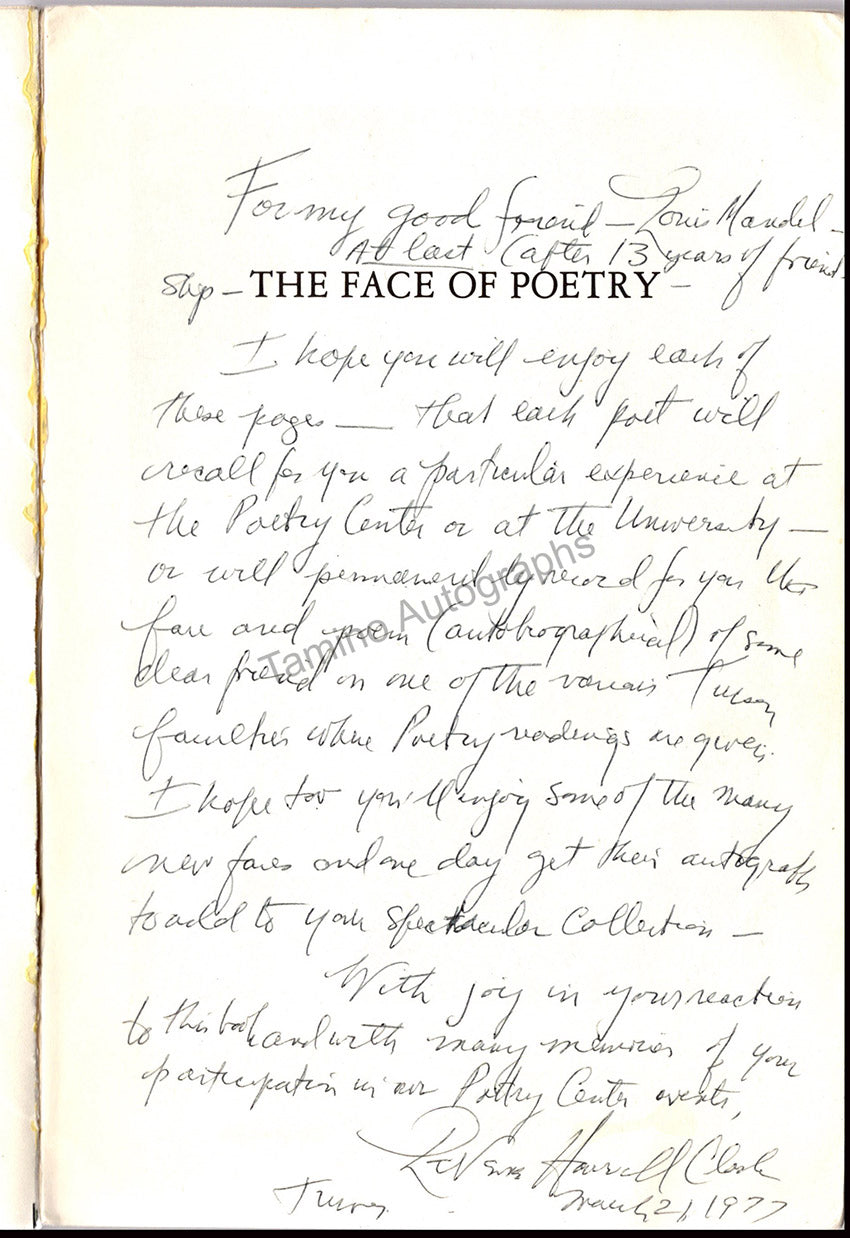 For my good friend — Louis Mandel —
At last (after 13 years of friend-
ship — THE FACE OF POETRY —
I hope you will enjoy each of
these pages — that each poet will
recall for you a particular experience at
the Poetry Center or at the University —
or will permanently record for you the
face and poem (autobiographical) of some
dear friend on one of the various Tucson
faculties where Poetry readings are given.
I hope too you'll enjoy some of the many
new faces and one day get their autograph
to add to your spectacular collection —
With joy in your reaction
to this book and with many memories of your
participation in our Poetry Center events,
LaVerne Harrell Clark
Tucson
March 21, 1977
Tamino Autographs